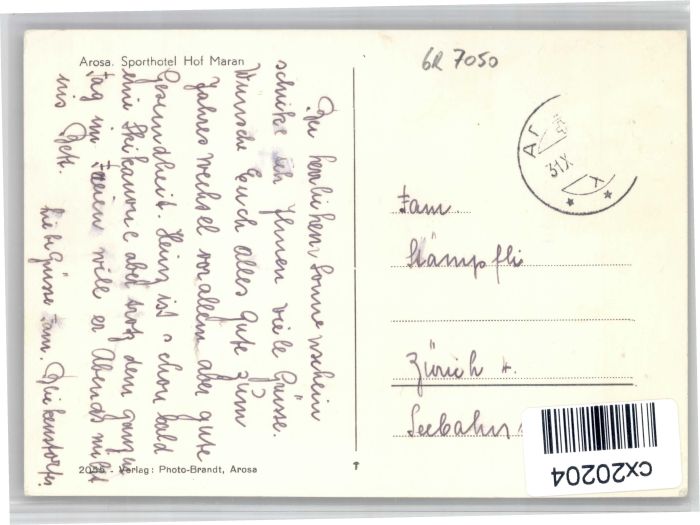 Arosa. Sporthotel Hof Maran
6R 7050
Bei herrlichem Sonnenschein
schicke ich Ihnen viele Grüsse.
Wünsche Euch alles gute zum
Jahreswechsel vor allem aber gute
Gesundheit. Heinz ist schon bald
eine Skikanone aber trotz dem ganzen
tag im freien will er Abends nicht
ins Bett.
Liebe Grüsse Fam.
2045 - Verlag: Photo-Brandt, Arosa
31 X
Fam.
Stämpfli
Zürich 4.
Seebahns
cx20204